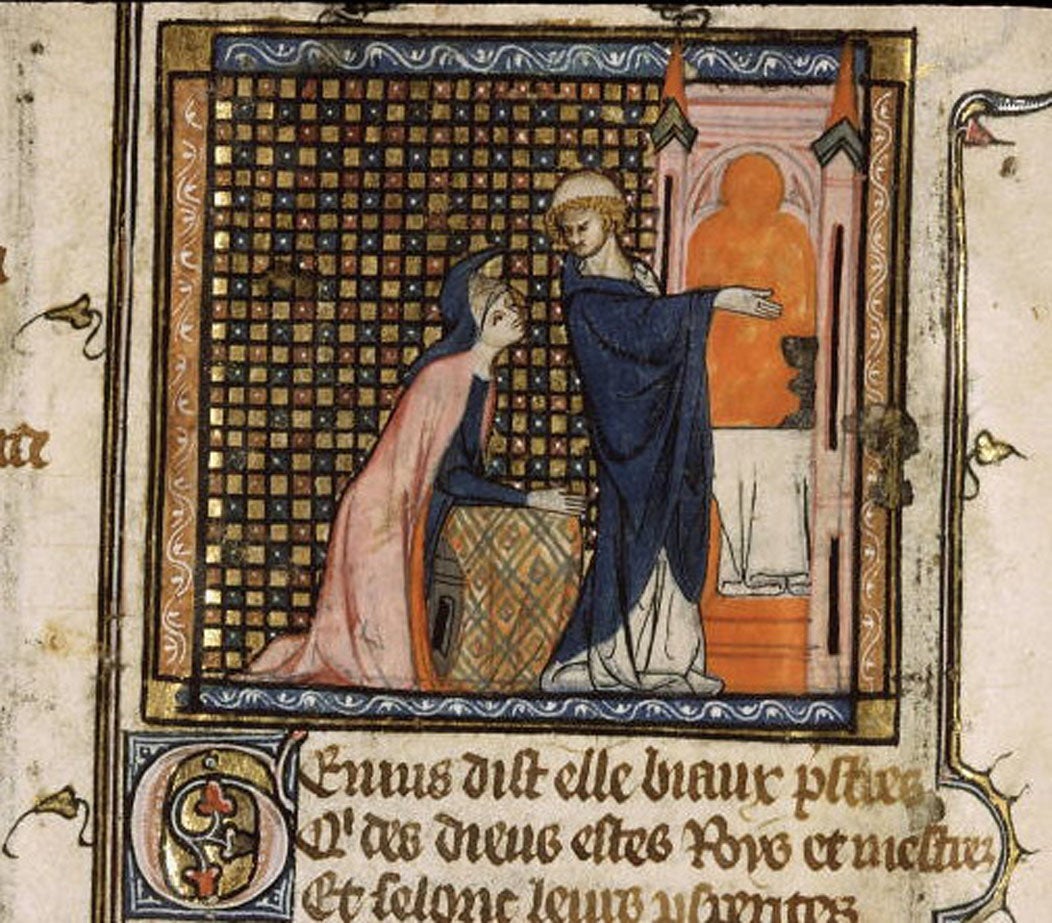 GEnius dist elle biaux p̄stres
Qⁱ des dieus estes Roys et mestres
Et selonc leurs